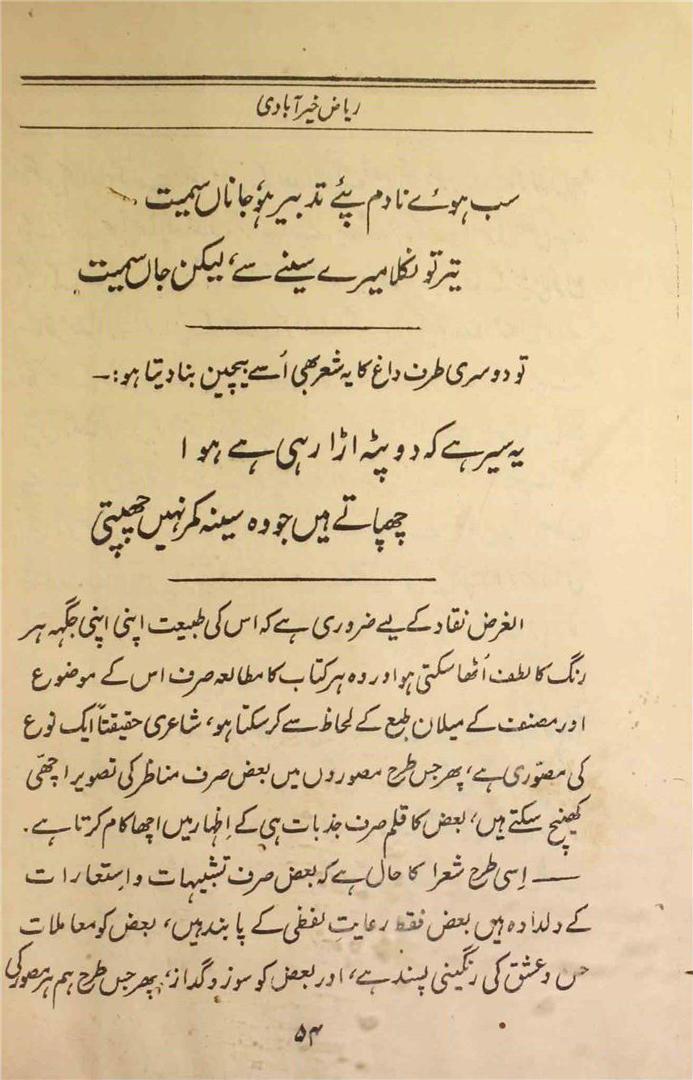 ریاض خیرآبادی
سب ہوئے نادم پئے تدبیر ہو جاناں سمیت
تیر تو نکلا میرے سینے سے، لیکن جاں سمیت
تو دوسری طرف داغ کا یہ شعر بھی اُسے بیچین بنا دیتا ہو:۔
یہ سیر ہے کہ دوپٹہ اڑا رہی ہے ہوا
چھپاتے ہیں جو وہ سینہ کمر نہیں چھپتی
الغرض نقاد کے لیے ضروری ہے کہ اس کی طبیعت اپنی اپنی جگہہ ہر
رنگ کا لطف اُٹھا سکتی ہو اور وہ ہر کتاب کا مطالعہ صرف اس کے موضوع
اور مصنف کے میلان طبع کے لحاظ سے کر سکتا ہو، شاعری حقیقتاً ایک نوع
کی مصوّری ہے، پھر جس طرح مصوروں میں بعض صرف مناظر کی تصویر اچھی
کھینچ سکتے ہیں، بعض کا قلم صرف جذبات ہی کے اِظہار میں اچھا کام کرتا ہے۔
— اِسی طرح شعرا کا حال ہے کہ بعض صرف تشبیہات و اِستعارات
کے دلدادہ ہیں بعض فقط رعایتِ لفظی کے پابند ہیں، بعض کو معاملات
حسن و عشق کی رنگینی پسند ہے، اور بعض کو سوز و گداز، پھر جس طرح ہم ہر مصور کی
۵۴